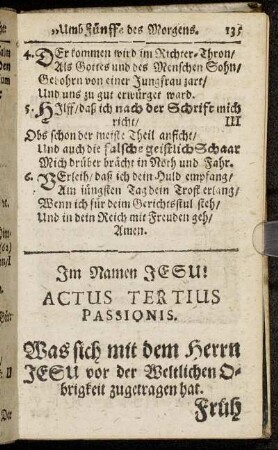 „Umb Fünffe des Morgens. 135
4. DEr kommen wird im Richter-Thron/
Als Gottes und des Menschen Sohn/
Gebohrn von einer Jungfrau zart/
Und uns zu gut erwürget ward.
5. HIlff/ daß ich nach der Schrifft mich
richt/ III
Obs schon der meiste Theil anficht/
Und auch die falsche geistlich Schaar
Mich drüber brächt in Noth und Fahr.
6. VErleih/ daß ich dein Huld empfang/
Am jüngsten Tag dein Trost erlang/
Wenn ich für deim Gerichtsstul steh/
Und in dein Reich mit Freuden geh/
Amen.
Im Namen JESU!
ACTUS TERTIUS
PASSIONIS.
Was sich mit dem Herrn
JESU vor der Weltlichen O-
brigkeit zugetragen hat.
Früh